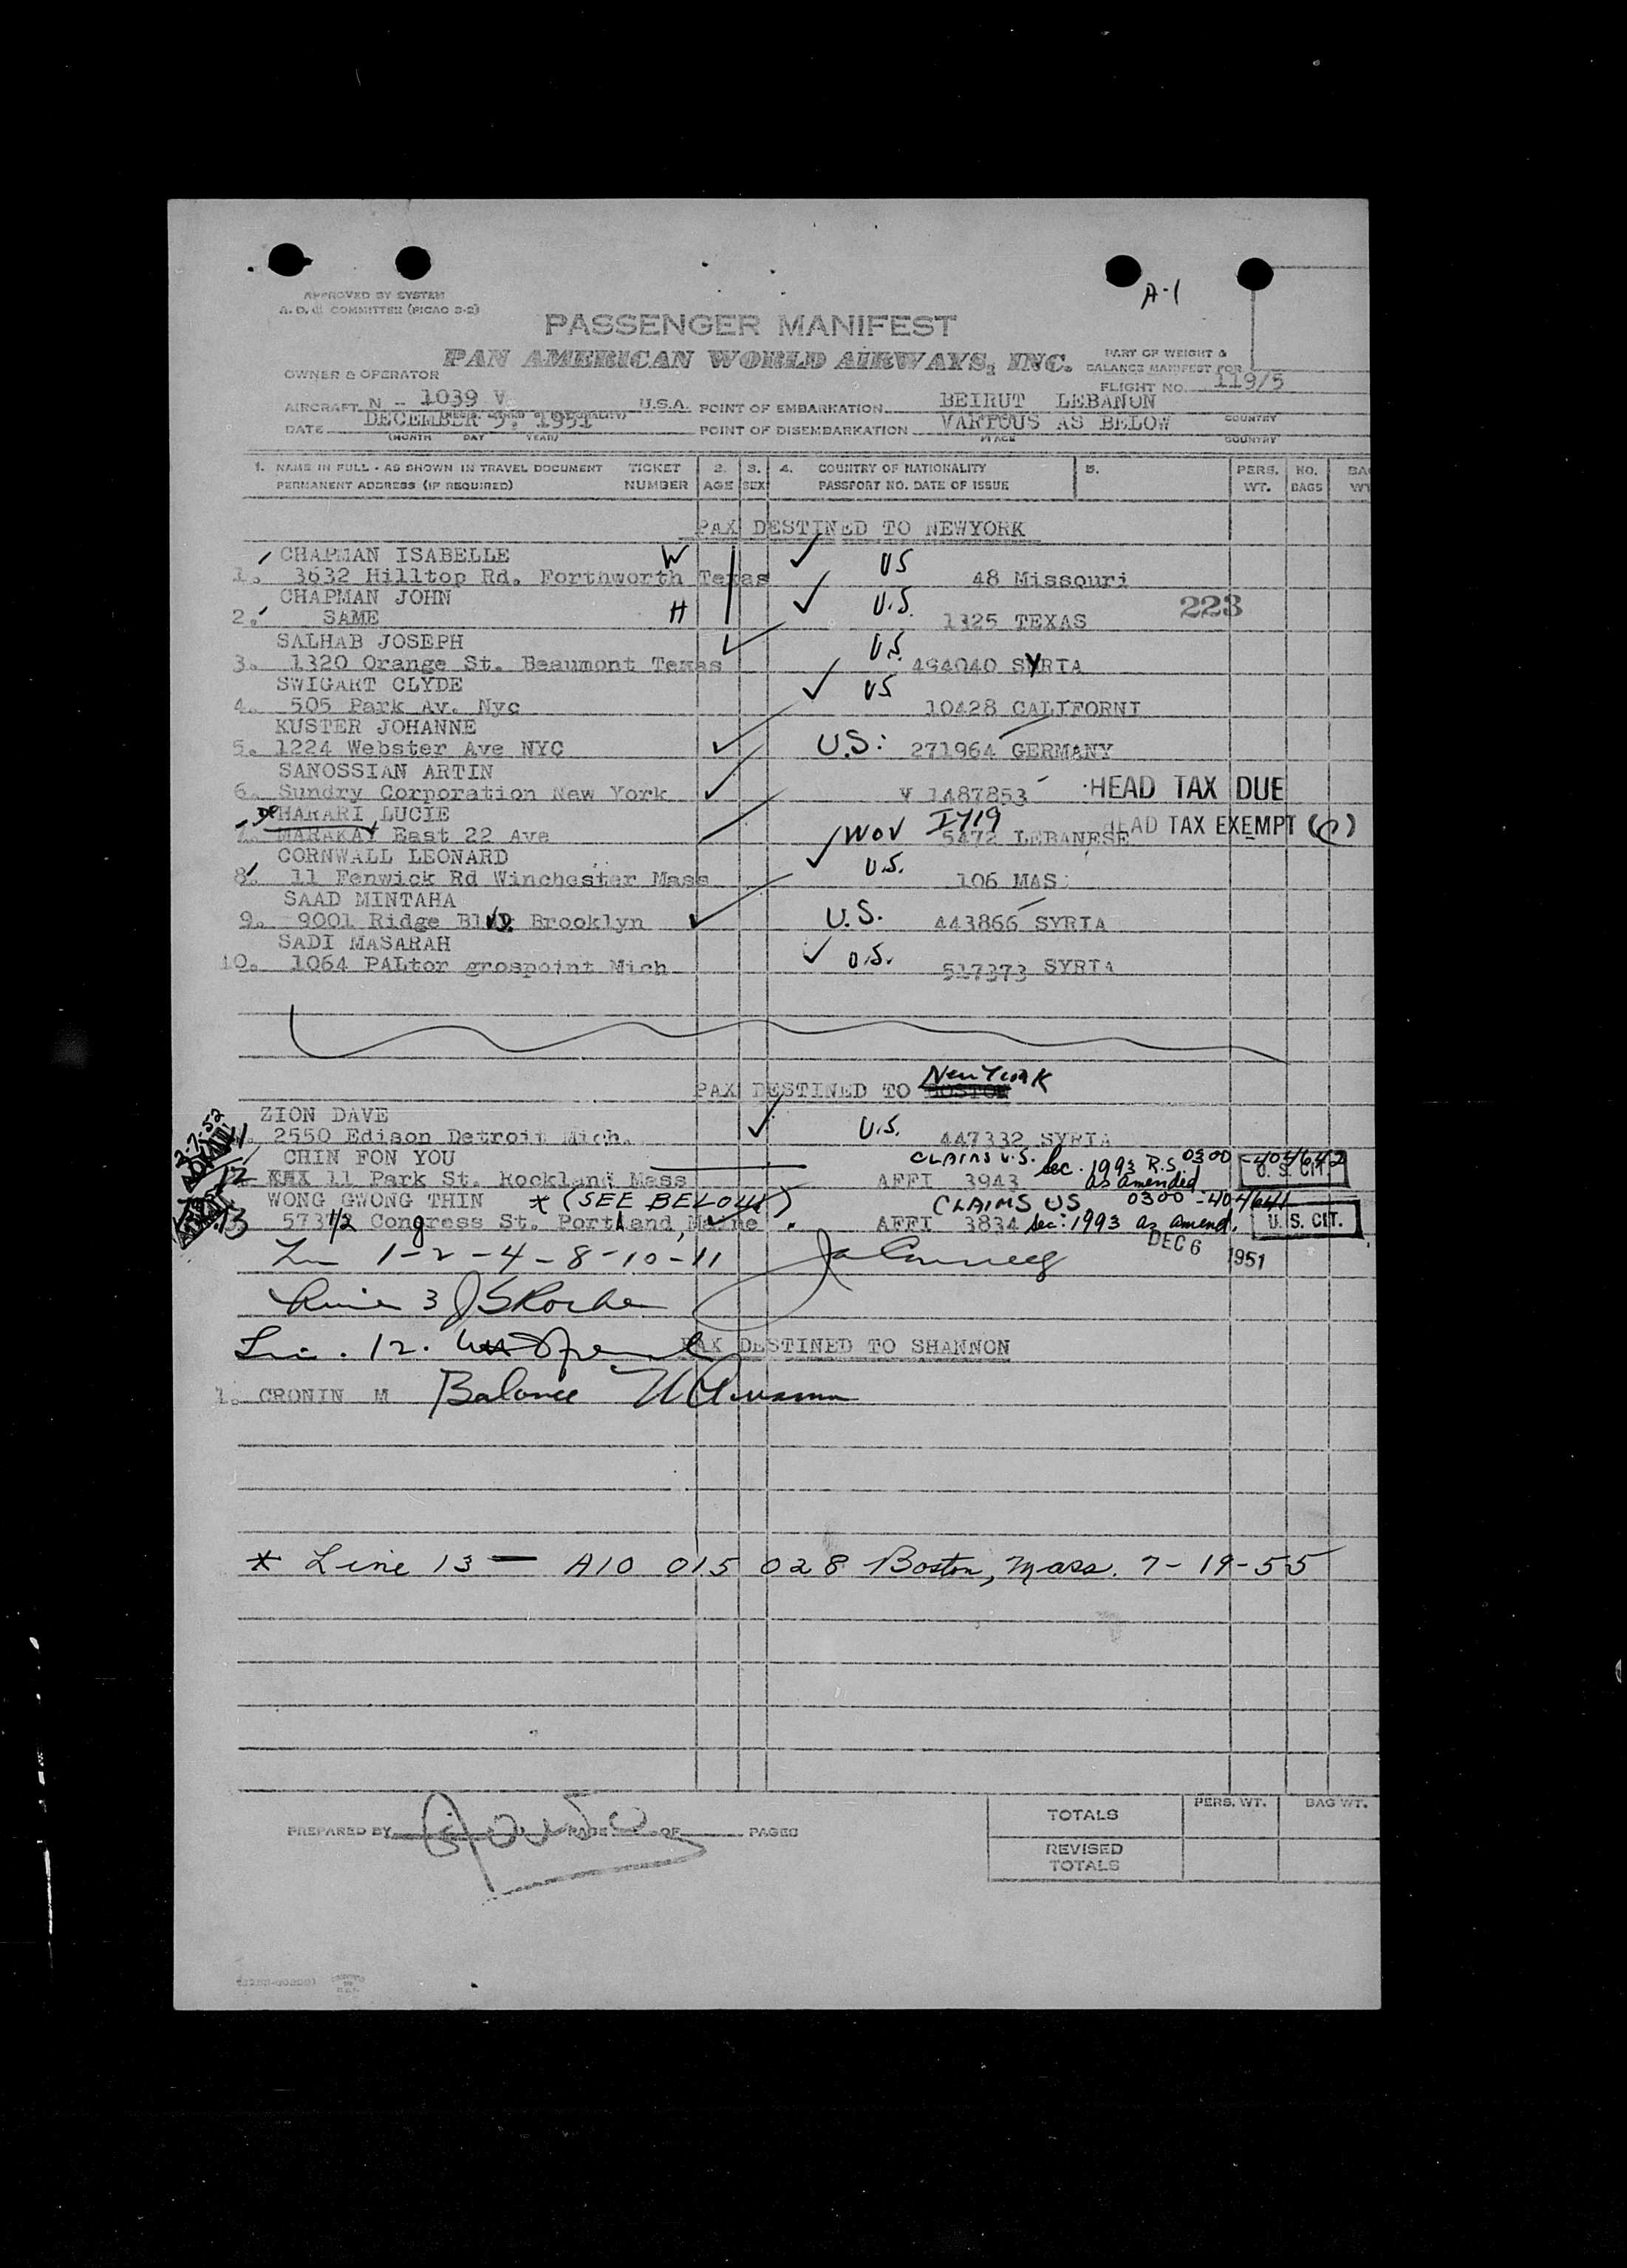 A-1
APPROVED BY SYSTEM
A. D. COMMITTEE (PICAO 3-2)
PASSENGER MANIFEST
PAN AMERICAN WORLD AIRWAYS, INC.
PART OF WEIGHT &
BALANCE MANIFEST FOR
OWNER & OPERATOR
FLIGHT NO. 119/5
AIRCRAFT N - 1039 V U.S.A. POINT OF EMBARKATION BEIRUT LEBANON COUNTRY
DATE DECEMBER 5. 1951 POINT OF DISEMBARKATION VARIOUS AS BELOW
(MONTH DAY YEAR) PLACE COUNTRY
1. NAME IN FULL - AS SHOWN IN TRAVEL DOCUMENT TICKET 2. 3. 4. COUNTRY OF NATIONALITY 5. PERS. NO. BAG
PERMANENT ADDRESS (IF REQUIRED) NUMBER AGE SEX PASSPORT NO. DATE OF ISSUE WT. BAGS WT
PAX DESTINED TO NEWYORK
CHAPMAN ISABELLE W US
1. 3632 Hilltop Rd. Forthworth Texas 48 Missouri
CHAPMAN JOHN H U.S.
2. SAME 1325 TEXAS 223
SALHAB JOSEPH U.S.
3. 1320 Orange St. Beaumont Texas 494040 SYRIA
SWIGART CLYDE US
4. 505 Park Av. Nyc 10428 CALIFORNI
KUSTER JOHANNE
5. 1224 Webster Ave NYC U.S: 271964 GERMANY
SANOSSIAN ARTIN
6. Sundry Corporation New York V 1487853 HEAD TAX DUE
HARARI LUCIE
7. MARAKAY East 22 Ave WOV I719 5472 LEBANESE HEAD TAX EXEMPT
CORNWALL LEONARD U.S.
8. 11 Fenwick Rd Winchester Mass 106 MAS
SAAD MINTAHA
9. 9001 Ridge Blvd. Brooklyn U.S. 443866 SYRIA
SADI MASARAH
10. 1064 PALtor grospoint Mich U.S. 527373 SYRIA
PAX DESTINED TO BOSTON New York
ZION DAVE
11 2550 Edison Detroit Mich. U.S. 447332 SYRIA
3-7-52
CHIN FON YOU CLAIMS U.S. Sec. 1993 R.S. 0300 -404642
12 11 Park St. Rockland Mass AFFI 3943 as amended U. S. CIT.
WONG GWONG THIN * (SEE BELOW) CLAIMS US 0300 -404641
13 573 1/2 Congress St. Portland, Maine. AFFI 3834 Sec: 1993 as amend. U. S. CIT.
DEC 6 1951
1-2-4-8-10-11
3
12.
PAX DESTINED TO SHANNON
1. CRONIN M Balance
* Line 13 — A10 015 028 Boston, Mass. 7-19-55
PREPARED BY PAGE OF PAGES
TOTALS PERS. WT. BAG WT.
REVISED
TOTALS